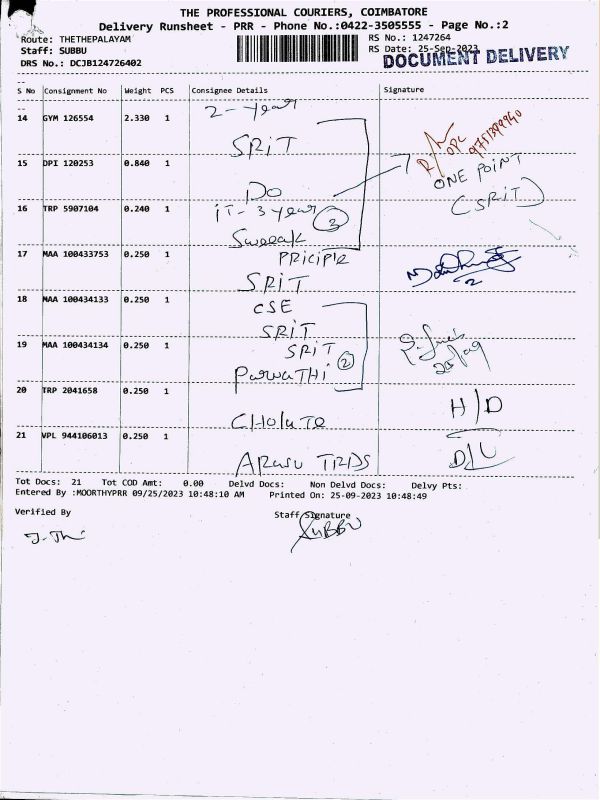 THE PROFESSIONAL COURIERS, COIMBATORE
Delivery Runsheet - PRR - Phone No.:0422-3505555 - Page No.:2
Route: THETHEPALAYAM
RS No.: 1247264
Staff: SUBBU
RS Date: 25-Sep-2023
DRS No.: DCJB124726402
DOCUMENT DELIVERY
S No Consignment No Weight PCS Consignee Details Signature
2-year
14 GYM 126554 2.330 1
SRiT
15 DPI 120253 0.840 1
ONE POINT
Do
(SRiT)
16 TRP 5907104 0.240 1
iT-3 year 3
17 MAA 100433753 0.250 1
SRiT
2
18 MAA 100434133 0.250 1
CSE
SRiT
19 MAA 100434134 0.250 1
SRiT 2
ParwaTHi
20 TRP 2041658 0.250 1
H/D
21 VPL 944106013 0.250 1
D/L
Tot Docs: 21 Tot COD Amt: 0.00 Delvd Docs: Non Delvd Docs: Delvy Pts:
Entered By :MOORTHYPRR 09/25/2023 10:48:10 AM Printed On: 25-09-2023 10:48:49
Verified By
Staff Signature
SUBBU